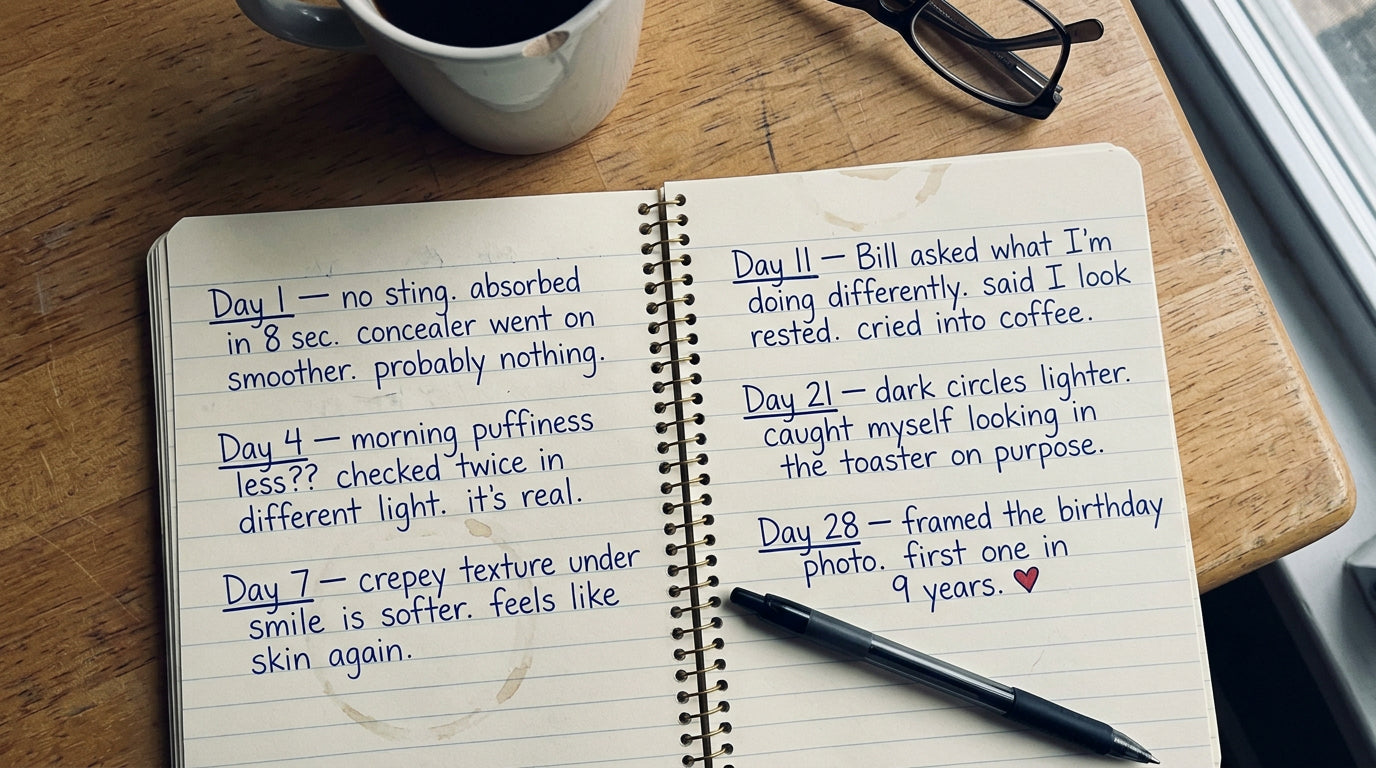 Day 1 — no sting. absorbed
in 8 sec. concealer went on
smoother. probably nothing.
Day 4 — morning puffiness
less?? checked twice in
different light. it's real.
Day 7 — crepey texture under
smile is softer. feels like
skin again.
Day 11 — Bill asked what I'm
doing differently. said I look
rested. cried into coffee.
Day 21 — dark circles lighter.
caught myself looking in
the toaster on purpose.
Day 28 — framed the birthday
photo. first one in
9 years. ♥